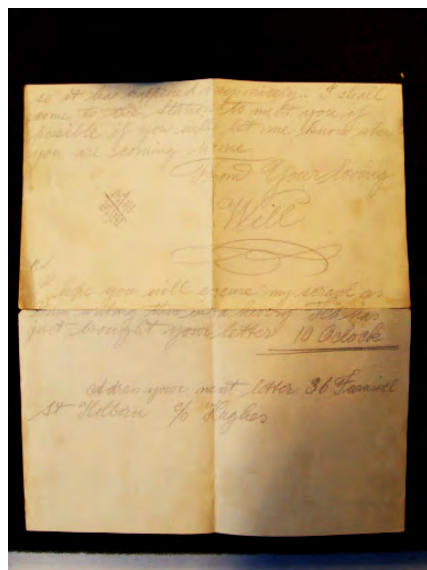 so it has happened very nicely. I shall
come to the station to meet you if
possible if you will let me know when
you are coming home
From Your loving
Will
I hope you will excuse my scrawl as
writing this in a has
just brought your letter 10 Oclock
Adres youre next letter 36 Furnival
St Holborn c/o Hughes